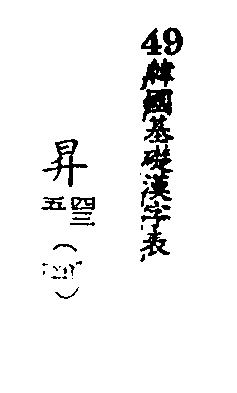 49韓國基礎漢字表
昇
四三
五